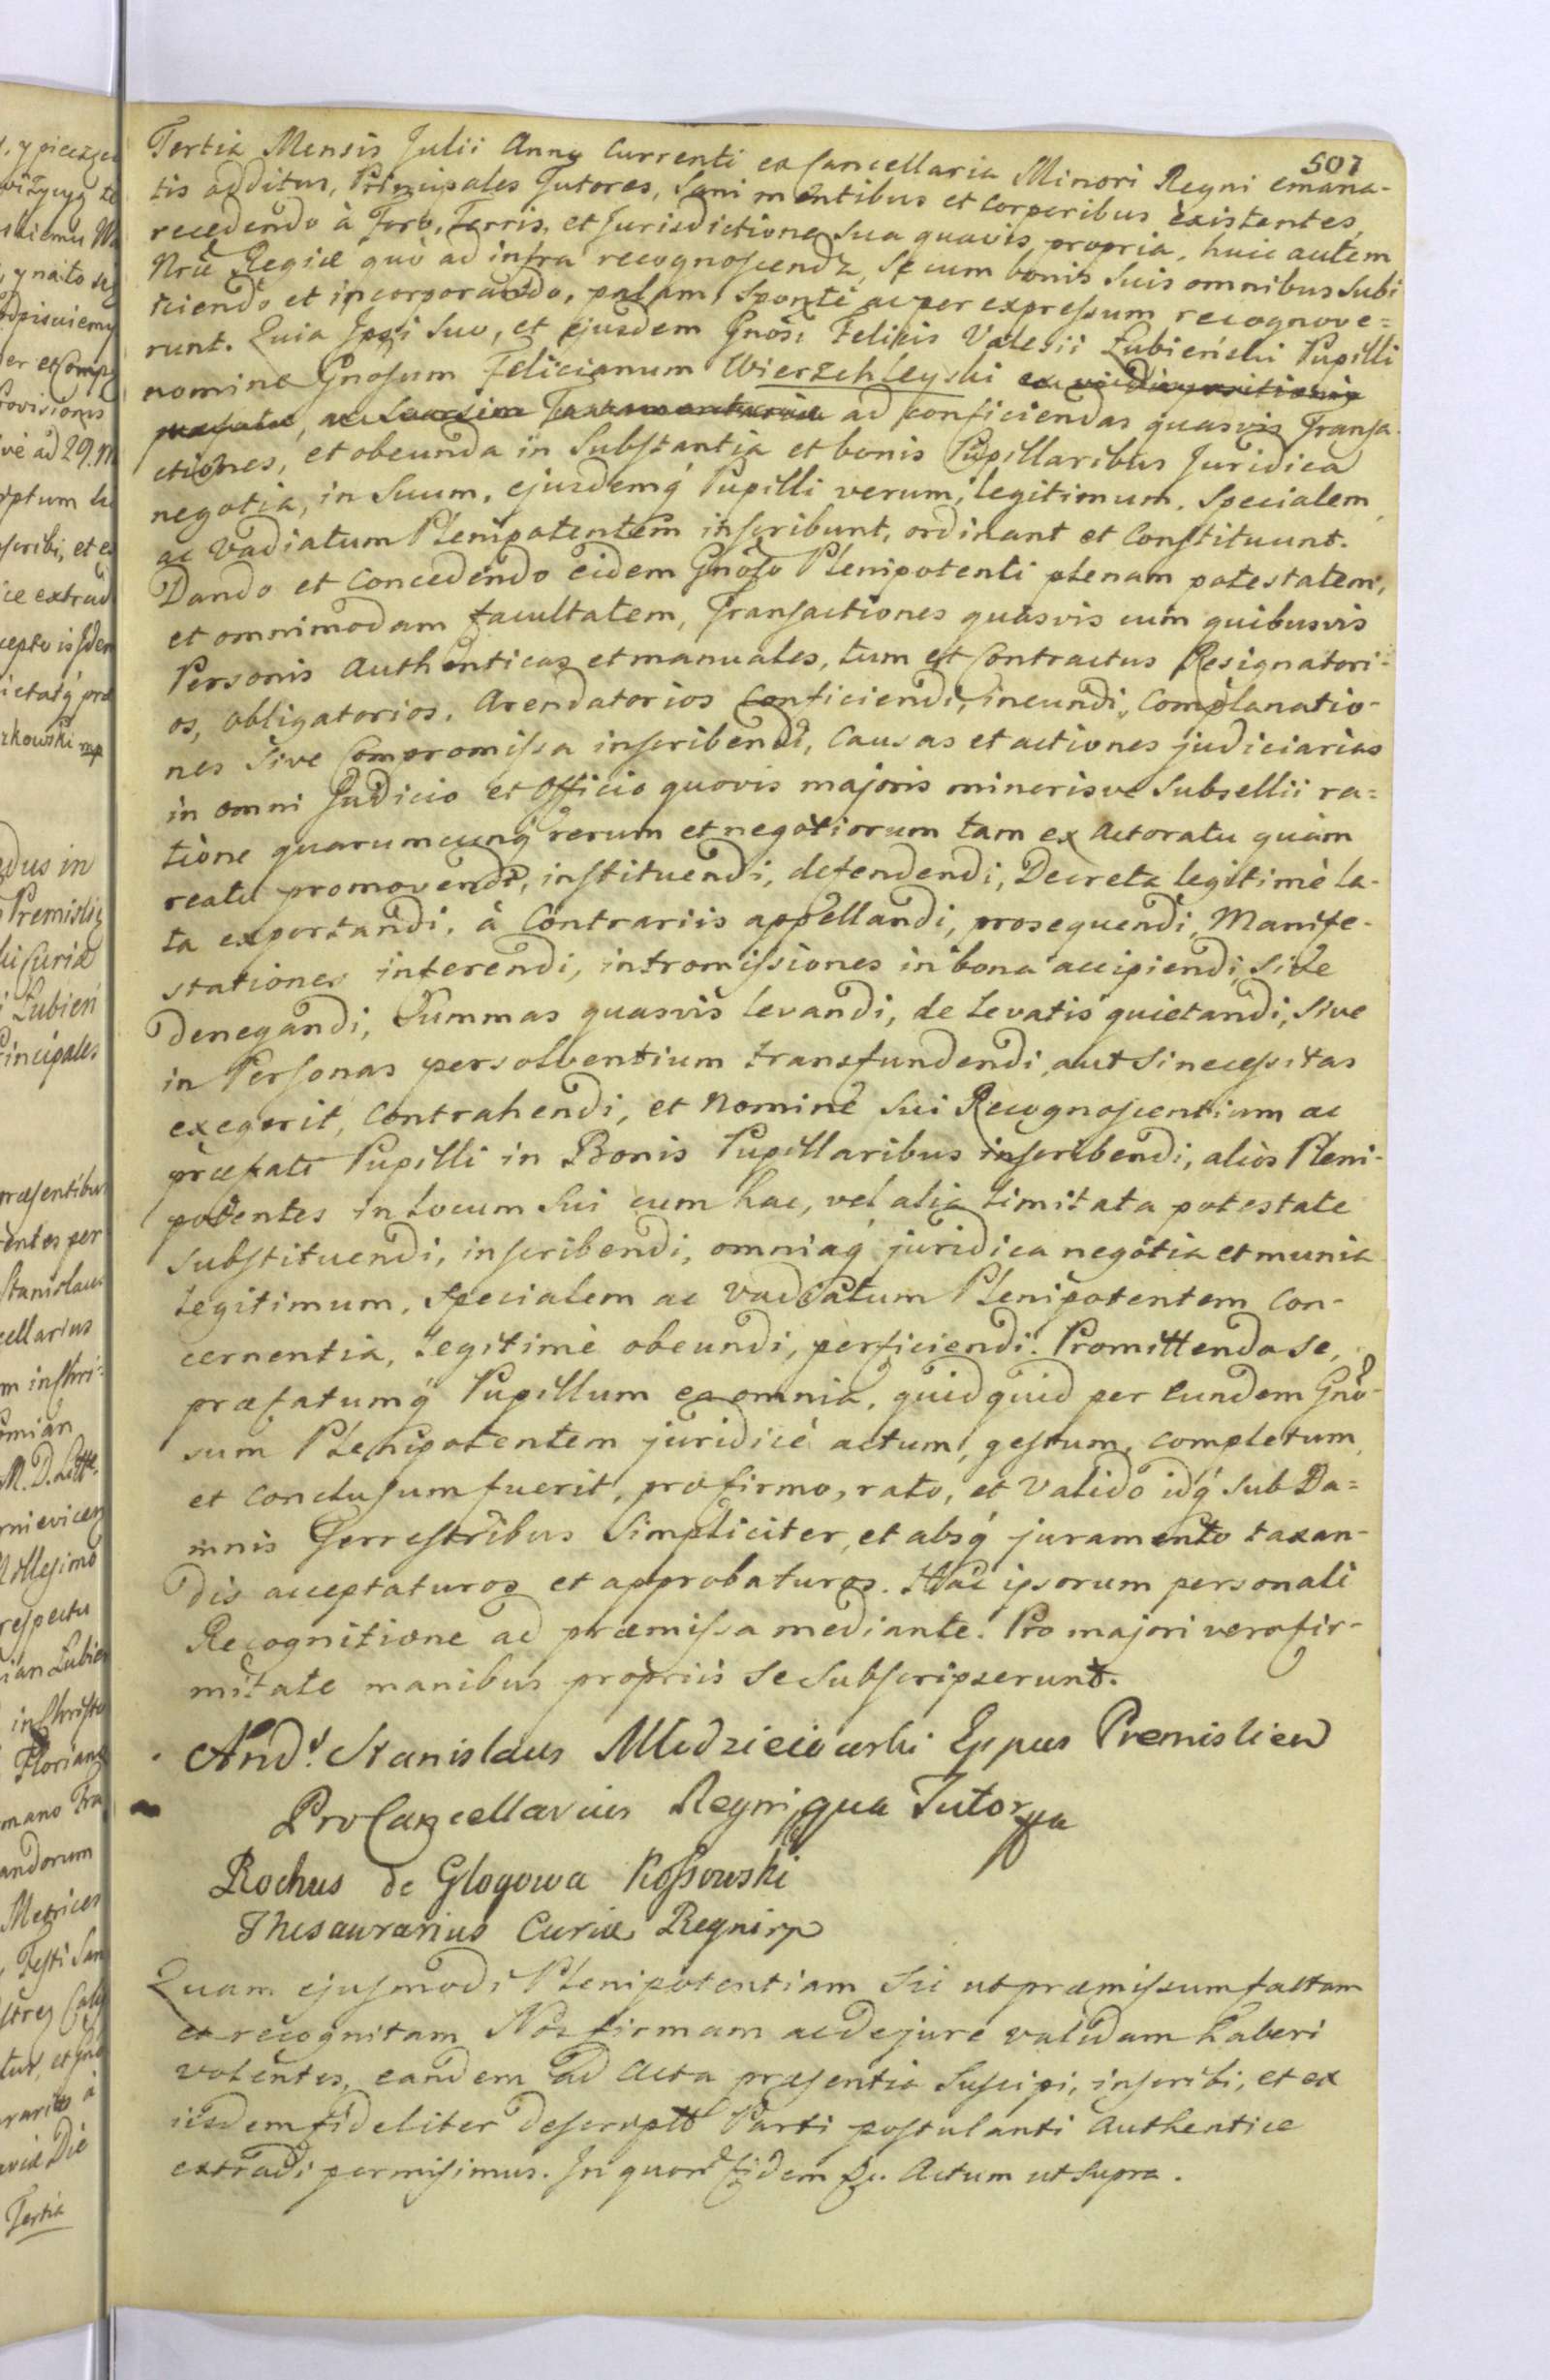 507
Tertia Mensis Julii Anno Currenti ex Cancellaria Minori Regni emana-
tis additus, Principales Tutores, Sani mentibus et corporibus existentes,
recedendo à Foro, Terris, et Jurisdictione sua quavis propria, huic autem
Nrae Regiae quò ad infra recognoscenda, se cum bonis suis omnibus subi
iciendo et incorporando, palam, sponte ac per expressum recognove=
runt. Quia Ipsi suo, et ejusdem Gnosi Felikis Valesii Łubieński Pupilli
nomine Gnosum Felicianum Wierzchleyski
ad conficiendas quasvis Transa-
ctiones, et obeunda in Substantia et bonis Pupillaribus Juridica
negotia, in Suum, ejusdemq́ Pupilli verum, legitimum, Specialem
ac Vadiatum Plenipotentem inscribunt, ordinant et Constituunt.
Dando et Concedendo eidem Gnoso Plenipotenti plenam potestatem,
et omnimodam facultatem, Transactiones quasvis cum quibusvis
Personis Authenticas et manuales, tum et Contractus Resignatori-
os, obligatorios, Arendatorios Conficiendi, ineundi, Complanatio-
nes sive Compromissa inscribendi, Causas et actiones judiciarias
in omni Judicio et Officio quovis majoris minorisve Subsellii ra=
tione quarumcunq́ rerum et negotiorum tam ex Actoratu quàm
reatu promovendi, instituendi, defendendi, Decreta legitimè la-
ta exportandi, à Contrariis appellandi, prosequendi, Manife-
stationes interendi, intromissiones in bona accipiendi, sive
denegandi, Summas quasvis levandi, de levatis quietandi, sive
in Personas persolventium transfundendi, aut si necessitas
exegerit, Contrahendi, et Nomine sui Recognoscentium ac
praefati Pupilli in Bonis Pupillaribus inscribendi, aliòs Pleni-
potentes in locum sui cum hac, vel alia limitata potestate
substituendi, inscribendi, omniaq́ juridica negotia et munia
Legitimum, Specialem ac Vadiatum Plenipotentem Con-
cernentia, Legitimè obeundi, perficiendi. Promittendo se,
praefatumq́ Pupillum ea omnia, quidquid per Eundem Gno-
sum Plenipotentem juridicè actum, gestum, completum,
et conclusum fuerit, pro firmo, rato, et Valido idq́ sub Da=
mnis Terrestribus simpliciter, et absq́ juramento taxan-
dis acceptaturos et approbaturos. Hac ipsorum personali
Recognitione ad praemissa mediante. Pro majori vero fir-
mitate manibus propriis se subscripserunt.
Andr. Stanislaus Młodzieiowski Eppus Premislien
ProCancellarius Regni, qua Tutor
Rochus de Glogowa Kossowski
Thesaurarius Curiae Regni mp
Quam ejusmodi Plenipotentiam sic ut praemissum factam
et recognitam Nos firmam ac de jure validam haberi
volentes, eandem ad Acta praesentia suscipi, inscribi, et ex
iisdem fideliter descriptā Parti postulanti Authentice
extradi permisimus. In quor̄ fidem &c. Actum ut supra.